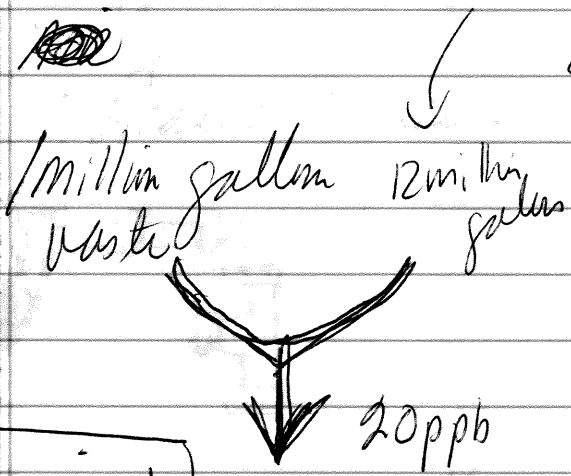 1 million gallon
waste
12 million
gallons
20ppb